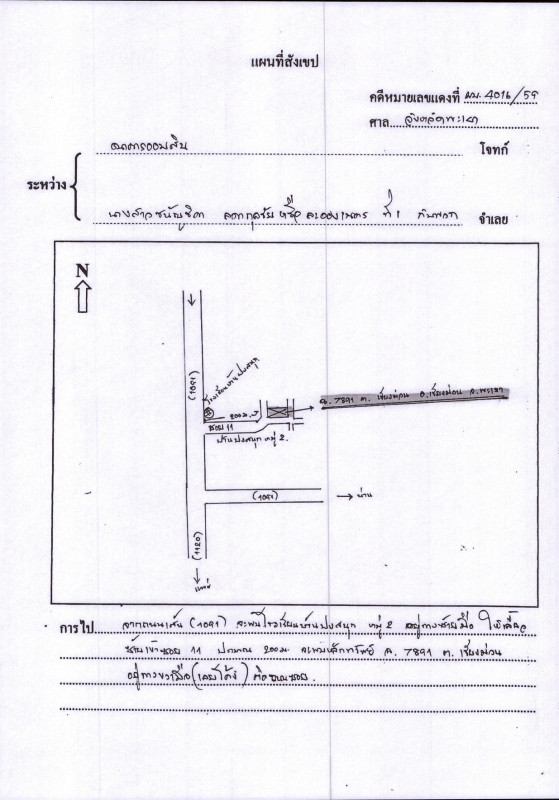 แผนที่สังเขป
คดีหมายเลขแดงที่ ผบ. 4016/59
ศาล จังหวัดพะเยา
ธนาคารออมสิน โจทก์
ระหว่าง
นางสาวชนัญธิดา ที่ 1 กับพวก จำเลย
N
(1091)
โรงเรียนบ้านปงสนุก
200ม.
ซอย 11
บ้านปงสนุก หมู่ 2
ฉ. 7891 ต. เชียงม่วน อ.เชียงม่วน จ.พะเยา
(1091)
น่าน
(1120)
แพร่
การไป จากถนนเส้น (1091) จะพบโรงเรียนบ้านปงสนุก หมู่ 2 อยู่ทางซ้ายมือ ให้เลี้ยว
ซ้ายเข้าซอย 11 ประมาณ 200ม จะพบหลักทรัพย์ ฉ. 7891 ต. เชียงม่วน
อยู่ทางขวามือ (เลยโค้ง) ติดถนนซอย.